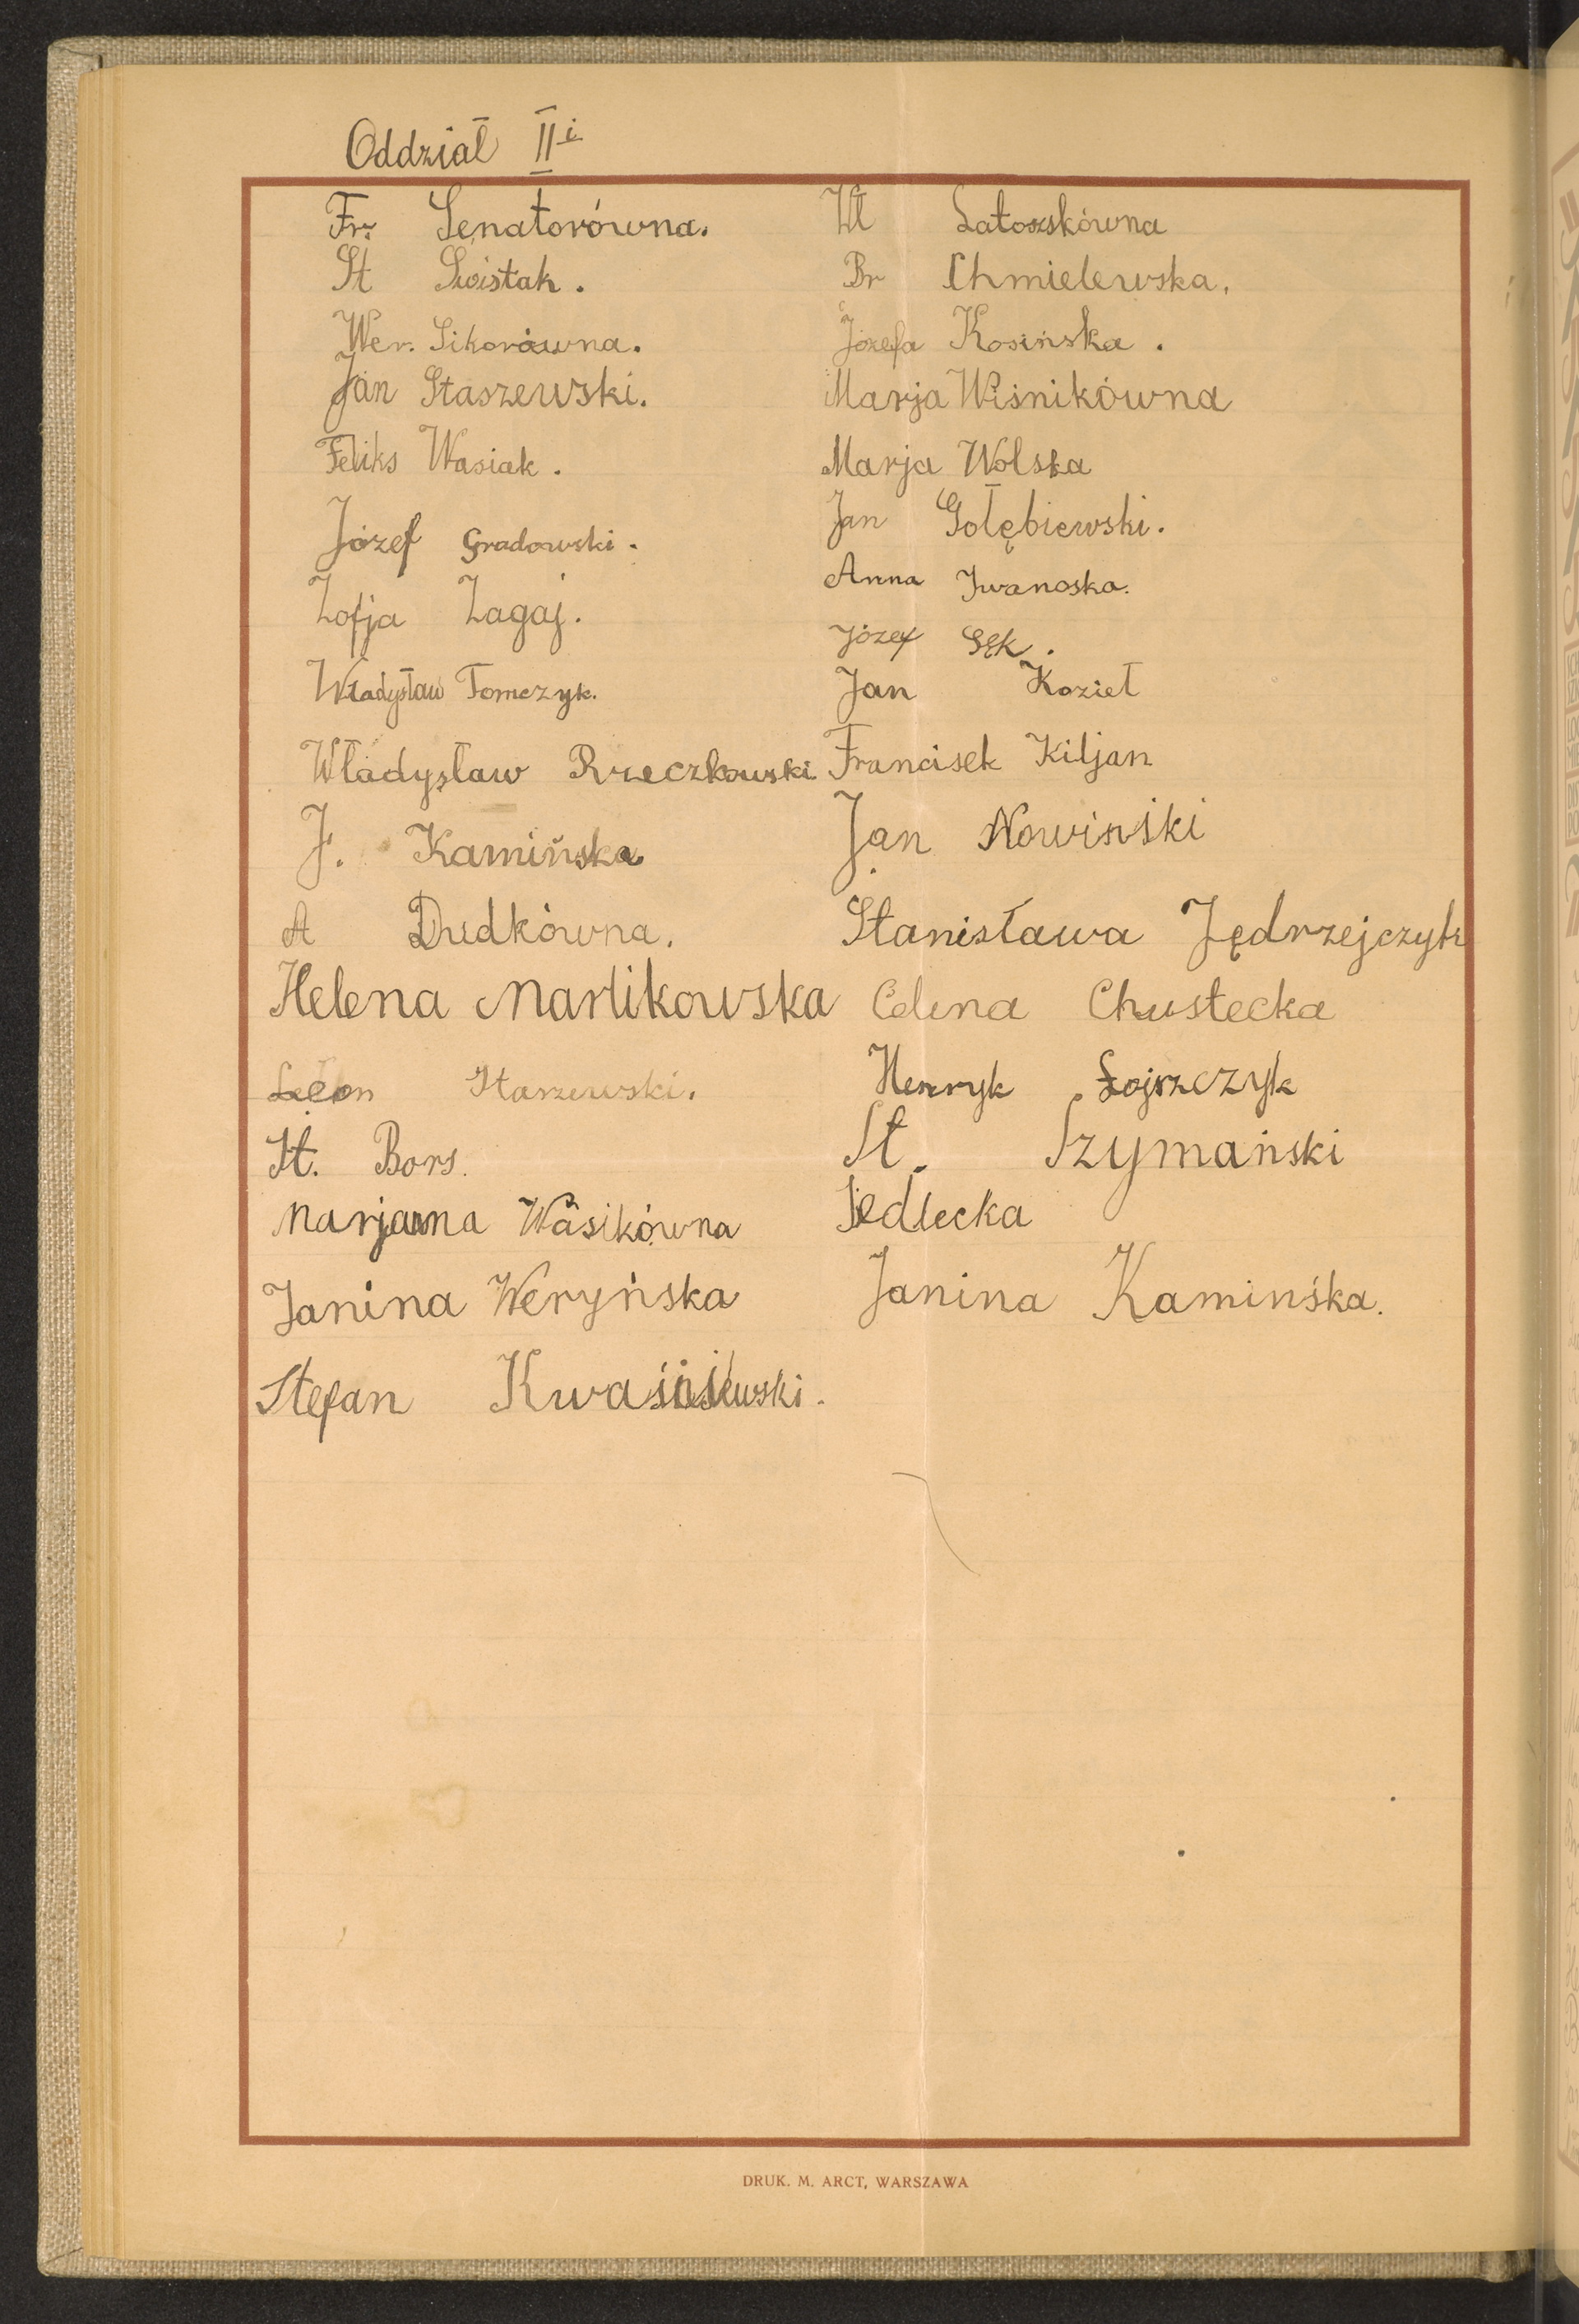 Oddział IIi
Fr. Senatorówna.
St Świstak.
Wer. Sikorówna.
Jan Staszewski.
Feliks Wasiak.
Józef Gradowski.
Zofja Zagaj.
Władysław Tomczyk.
Władysław Rzeczkowski.
J. Kamińska
A Dudkówna.
Helena Martikowska
Leon Starzewski.
St. Bors.
Marjanna Wasikówna
Janina Weryńska
Stefan Kwaśniewski.
Wł Latoszkówna
Br Chmielewska.
Józefa Kosińska.
Marja Wiśnikówna
Marja Wolska
Jan Gołębiewski.
Anna Iwanoska.
Józef Sęk.
Jan Kozieł
Francisek Kiljan
Jan Nowinśki
Stanisława Jędrzejczyk
Celina Chustecka
Henryk Łojszczyk
St. Szymański
Jedlecka
Janina Kaminśka.
DRUK. M. ARCT, WARSZAWA